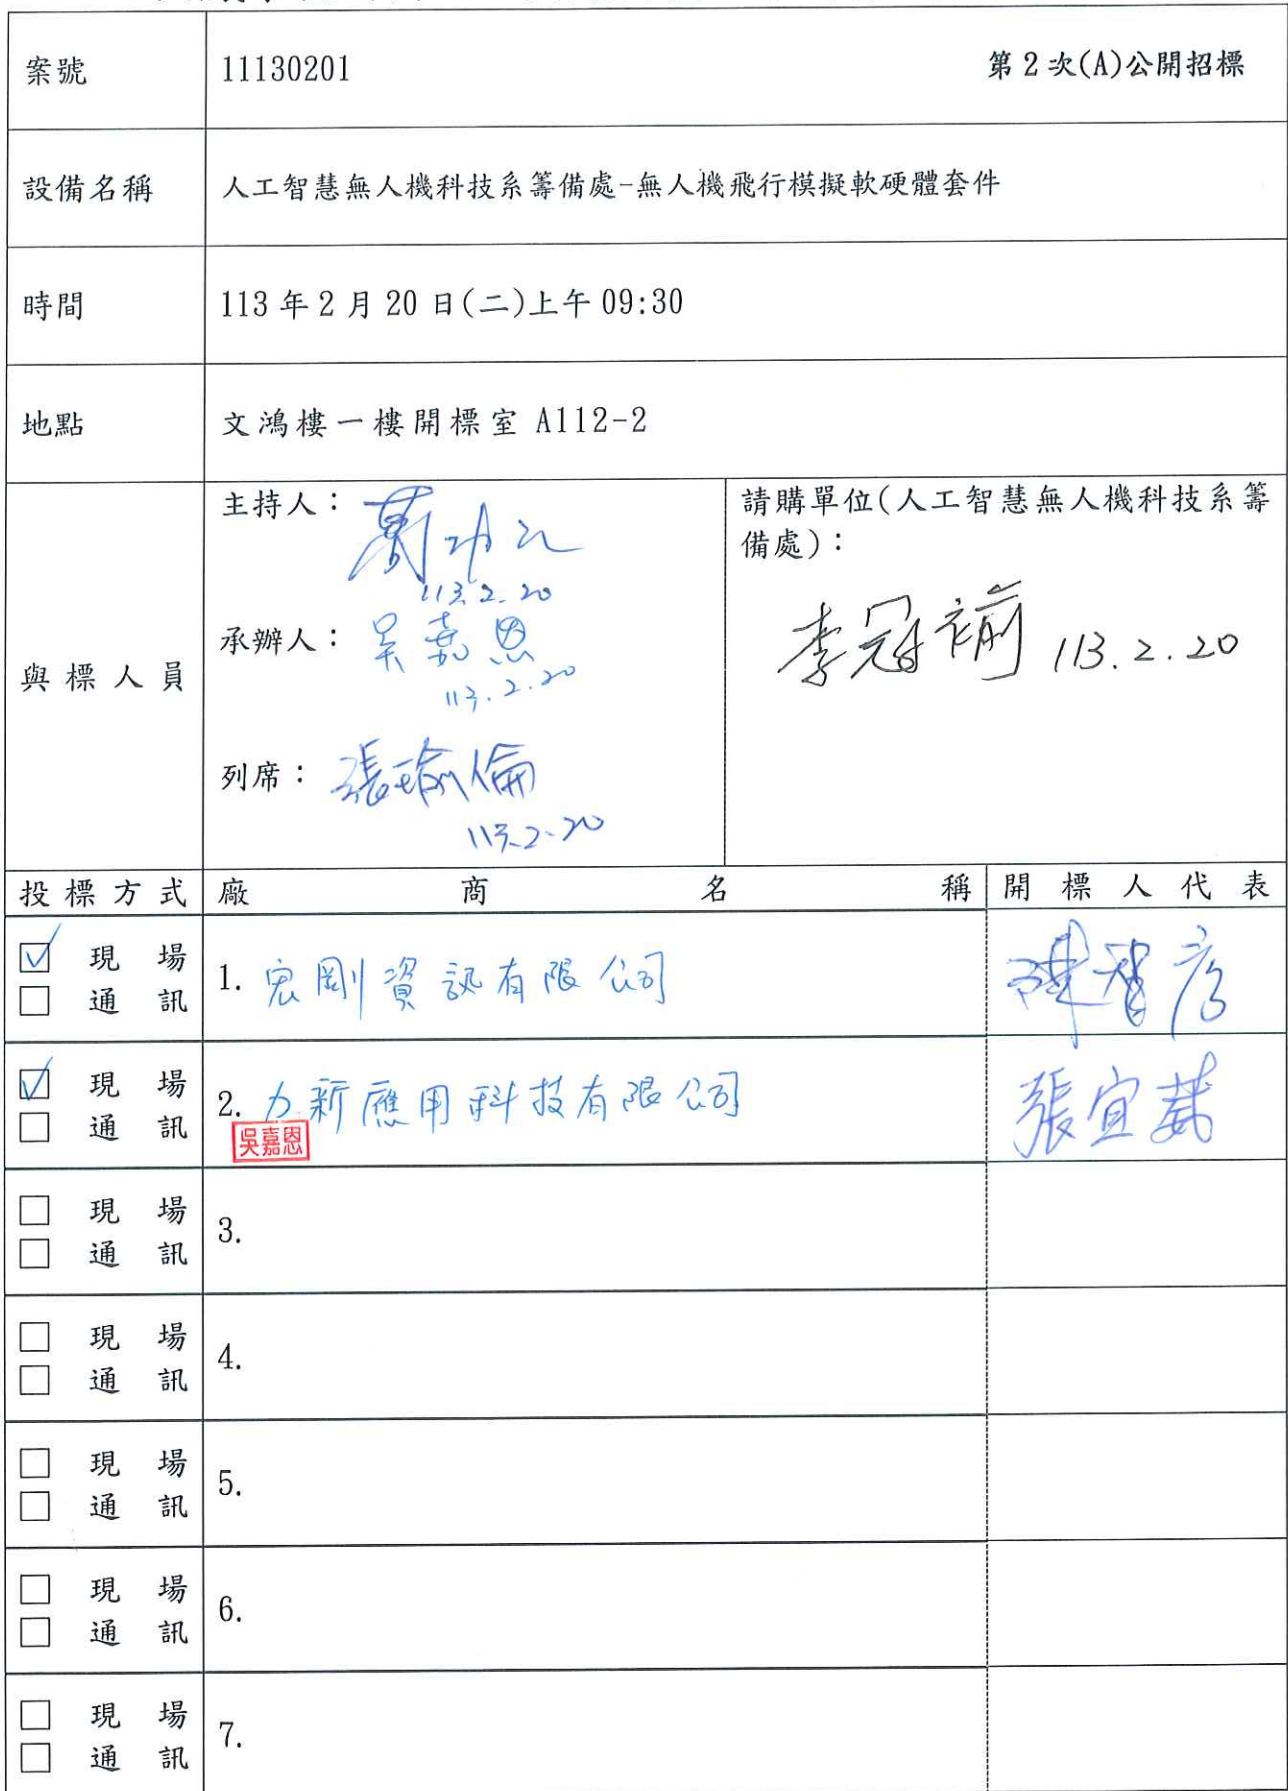 案號 11130201 第 2 次(A)公開招標
設備名稱 人工智慧無人機科技系籌備處-無人機飛行模擬軟硬體套件
時間 113 年 2 月 20 日(二)上午 09:30
地點 文鴻樓一樓開標室 A112-2
與標人員
主持人：
113.2.20
承辦人：吳嘉恩
113.2.20
列席：張瑜倫
113.2.20
請購單位(人工智慧無人機科技系籌
備處)：
李冠 113.2.20
投標方式 廠商名稱 開標人代表
☑ 現場
□ 通訊
1. 宏剛資訊有限公司
陳智彥
☑ 現場
□ 通訊
2. 力新應用科技有限公司
吳嘉恩
張宜
□ 現場
□ 通訊
3.
□ 現場
□ 通訊
4.
□ 現場
□ 通訊
5.
□ 現場
□ 通訊
6.
□ 現場
□ 通訊
7.